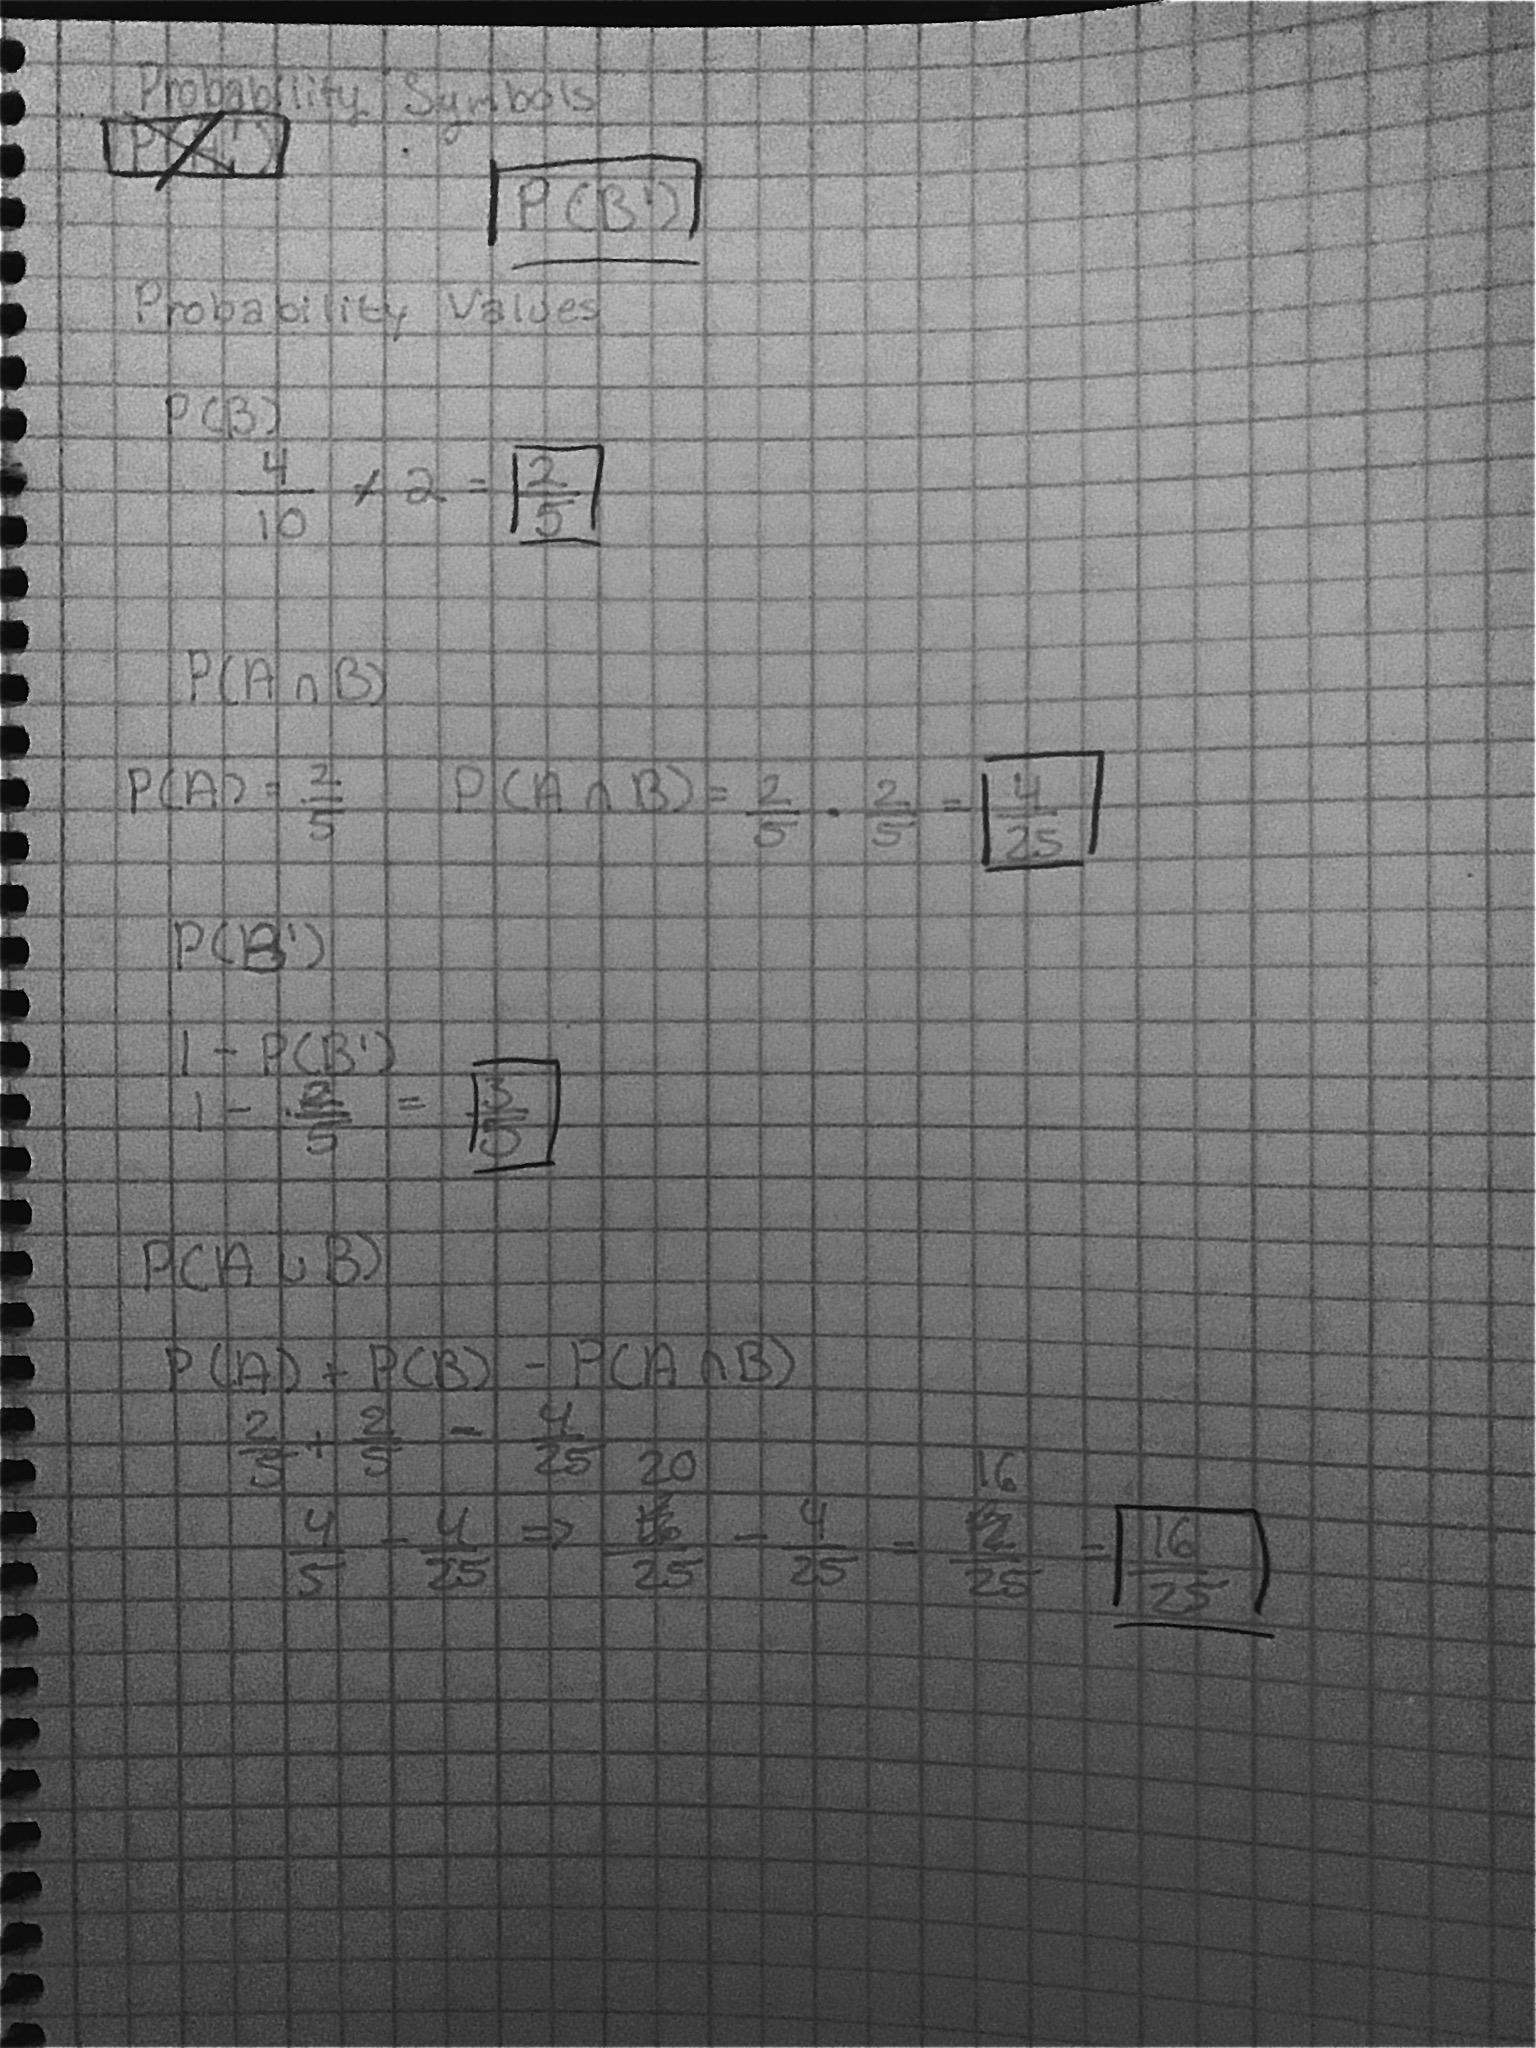 Probability Symbols
P(A')
P(B')
Probability Values
P(B)
4/10 / 2 = 2/5
P(A ∩ B)
P(A) = 2/5 P(A ∩ B) = 2/5 · 2/5 = 4/25
P(B')
1 - P(B')
1 - 2/5 = 3/5
P(A ∪ B)
P(A) + P(B) - P(A ∩ B)
2/5 + 2/5 - 4/25
4/5 - 4/25 => 20/25 - 4/25 = 16/25 = 16/25